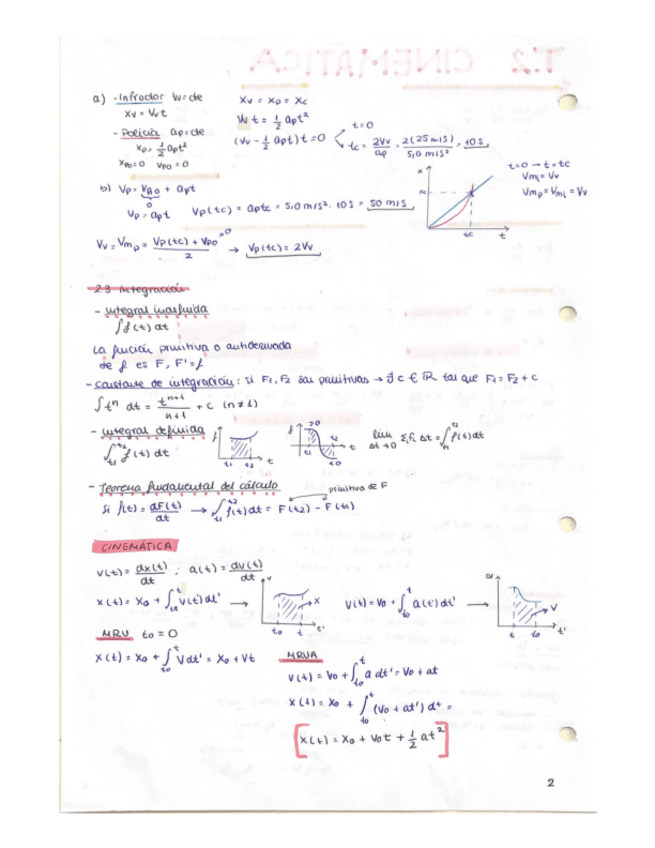 a) - Infractor Vv=cte
Xv = Vv t
- Policía ap=cte
xp = 1/2 ap t²
xpo=0 vpo=0
Xv = Xp = Xc
Vv t = 1/2 ap t²
(Vv - 1/2 ap t) t = 0
t=0
tc = 2Vv/ap = 2(25 m/s)/5,0 m/s² = 10 s
x
xc
tc
t
t=0 → t=tc
Vmi = Vv
Vmp = Vmi = Vv
b) Vp = Vpo + apt
0
Vp = apt
Vp(tc) = aptc = 5,0 m/s² · 10 s = 50 m/s
Vv = Vmp = Vp(tc) + Vpo / 2 → Vp(tc) = 2Vv
→0
2.3 Integración
- integral indefinida
∫f(t) dt
La función primitiva o antiderivada
de f es F, F' = f
- constante de integración: si F1, F2 son primitivas → ∃ c ∈ ℝ tal que F1 = F2 + c
∫tⁿ dt = tⁿ⁺¹/n+1 + c (n ≠ 1)
- integral definida
∫t1 t2 f(t) dt
f
t1 t2 t
f
>0
t1
t2
t
<0
lim Δt→0 Σi fi Δt = ∫t1 t2 f(t) dt
- Teorema fundamental del cálculo
primitiva de F
si f(t) = dF(t)/dt → ∫t1 t2 f(t) dt = F(t2) - F(t1)
CINEMÁTICA
v(t) = dx(t)/dt ; a(t) = dv(t)/dt
x(t) = x0 + ∫t0 t v(t) dt' →
v
x
t0 t t'
v(t) = v0 + ∫t0 t a(t') dt' →
a
v
t t0 t'
MRU t0 = 0
x(t) = x0 + ∫t0 t v dt' = x0 + vt
MRUA
v(t) = v0 + ∫t0 t a dt' = v0 + at
x(t) = x0 + ∫t0 t (v0 + at') dt =
[x(t) = x0 + v0t + 1/2 at²]
2